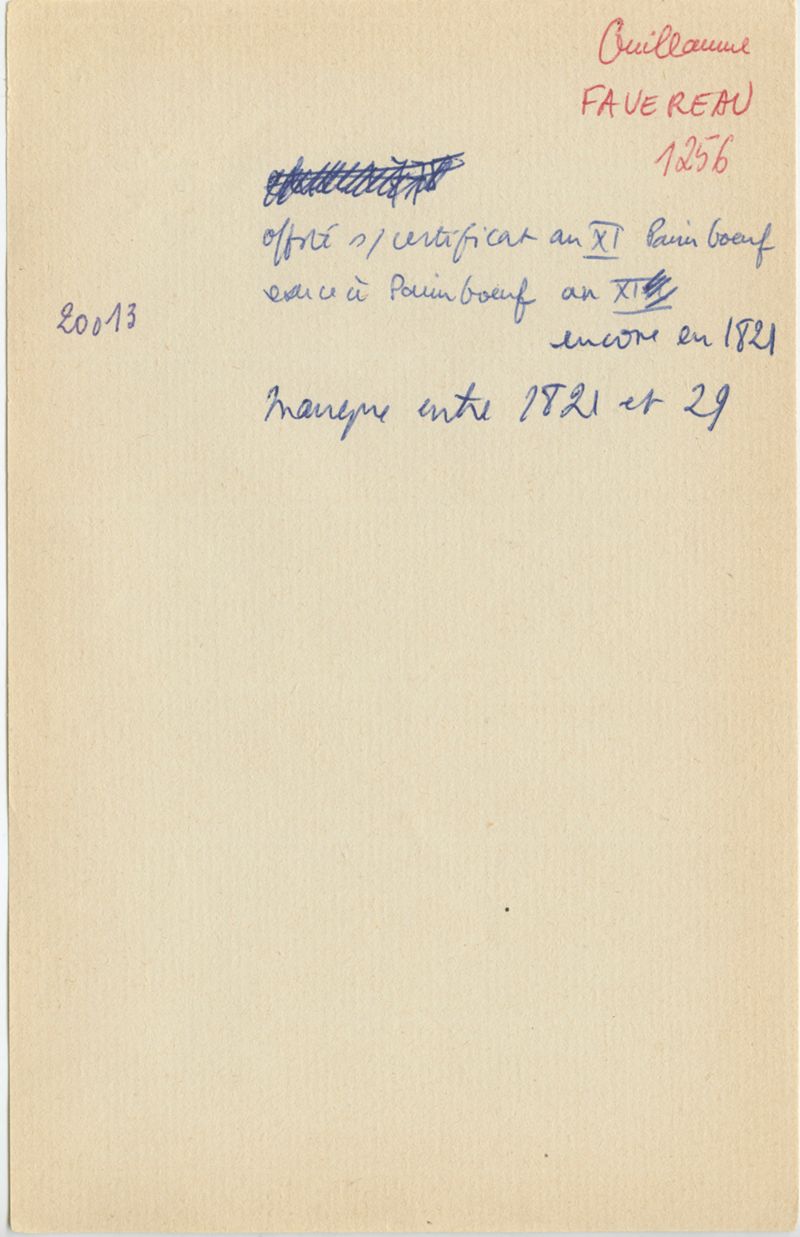 Guillaume
FAVEREAU
1256
s/certificat an XI Paimboeuf
exerce à Paimboeuf an XI
20013
encore en 1821
Manque entre 1821 et 29